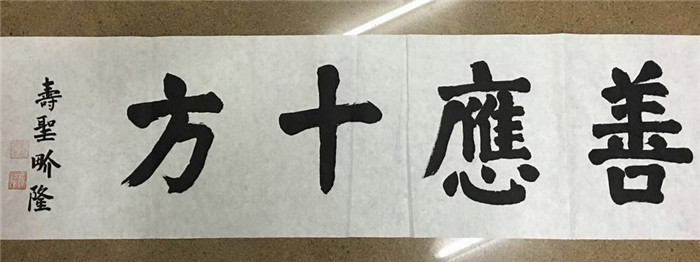 善應十方
壽聖畍隆